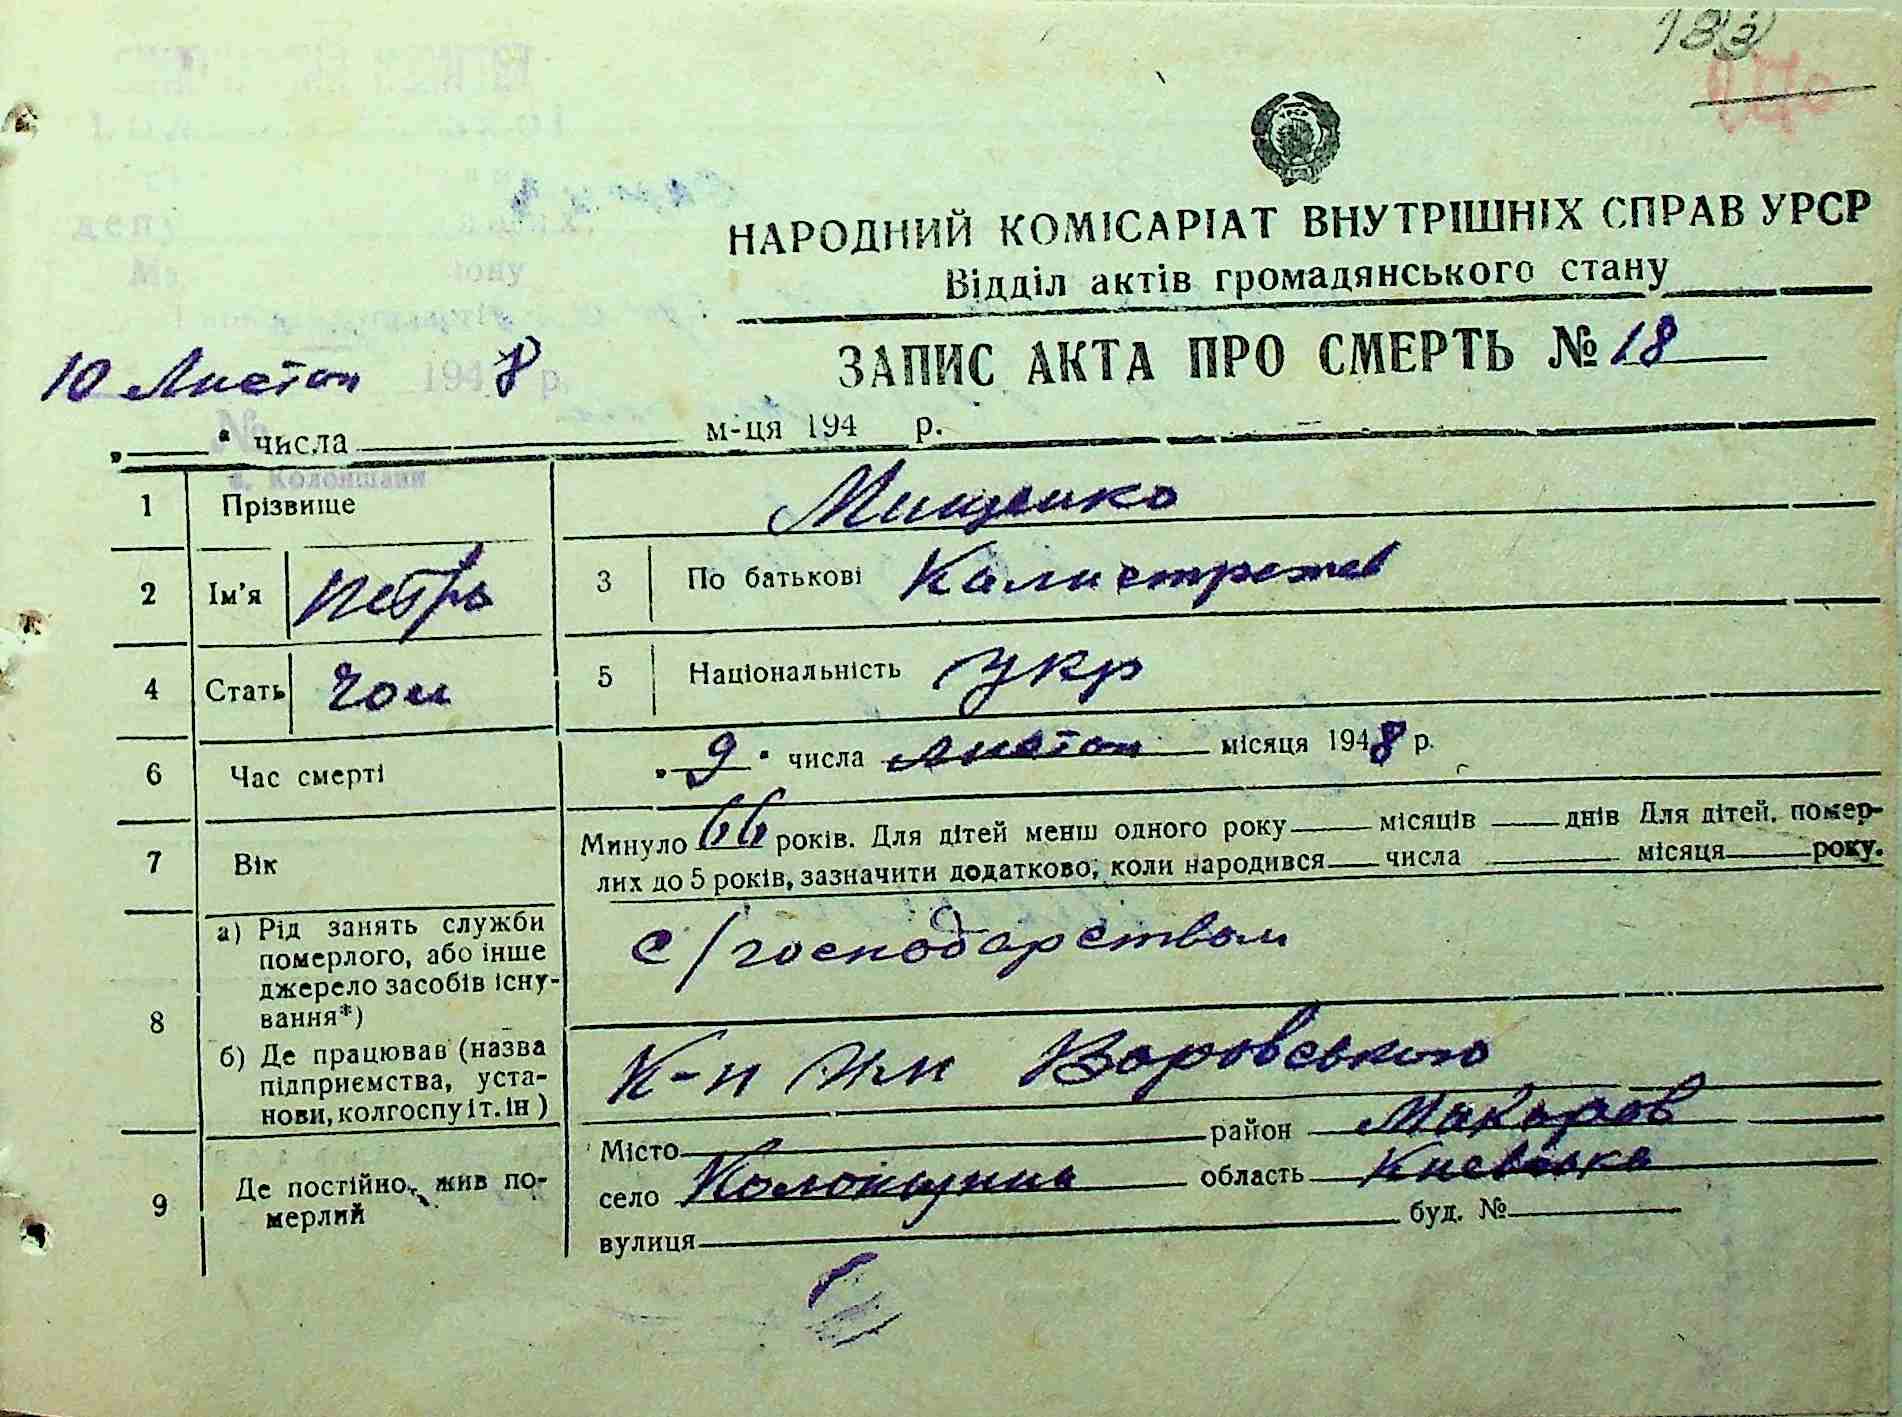 183
НАРОДНИЙ КОМІСАРІАТ ВНУТРІШНІХ СПРАВ УРСР
Відділ актів громадянського стану
ЗАПИС АКТА ПРО СМЕРТЬ № 18
10 Листоп 1948 р.
№
„ " числа м-ця 194 р.
с. Колонщини
1 Прізвище Мищенко
2 Ім'я Петро 3 По батькові Калистратов
4 Стать Чол 5 Національність Укр
6 Час смерті „9" числа листоп місяця 1948 р.
7 Вік Минуло 66 років. Для дітей менш одного року місяців днів Для дітей, помер-
лих до 5 років, зазначити додатково, коли народився числа місяця року.
8 а) Рід занять служби померлого, або інше джерело засобів існу-вання*) с/господарством
б) Де працював (назва підприємства, уста-нови, колгоспу і т. ін) К-п Им Воровського
9 Де постійно жив по-мерлий
Місто район Макаров
село Колонщина область Киевська
вулиця буд. №